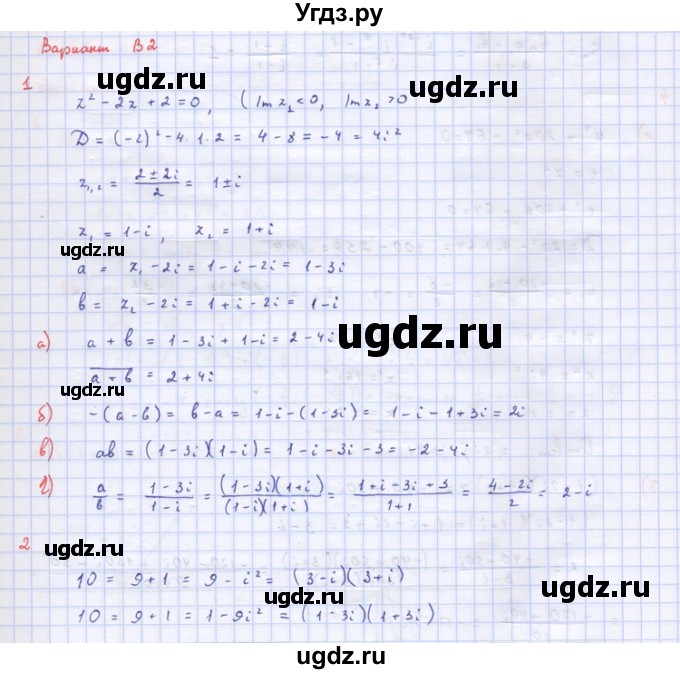 Угдз.ру
Вариант В2
ugdz.ru
ugdz.ru
1
z² - 2z + 2 = 0, ( Im z₁ < 0, Im z₂ > 0
D = (-2)² - 4·1·2 = 4 - 8 = -4 = 4i²
z₁,₂ = (2 ± 2i)/2 = 1 ± i
z₁ = 1 - i, z₂ = 1 + i
ugdz.ru
a = z₁ - 2i = 1 - i - 2i = 1 - 3i
b = z₂ - 2i = 1 + i - 2i = 1 - i
ugdz.ru
а) a + b = 1 - 3i + 1 - i = 2 - 4i
a + b = 2 + 4i
ugdz.ru
б) -(a - b) = b - a = 1 - i - (1 - 3i) = 1 - i - 1 + 3i = 2i
в) ab = (1 - 3i)(1 - i) = 1 - i - 3i - 3 = -2 - 4i
г) a/b = (1 - 3i)/(1 - i) = (1 - 3i)(1 + i)/(1 - i)(1 + i) = (1 + i - 3i + 3)/(1 + 1) = (4 - 2i)/2 = 2 - i
2
ugdz.ru
10 = 9 + 1 = 9 - i² = (3 - i)(3 + i)
ugdz.ru
ugdz.ru
10 = 9 + 1 = 1 - 9i² = (1 - 3i)(1 + 3i)
ugdz.ru